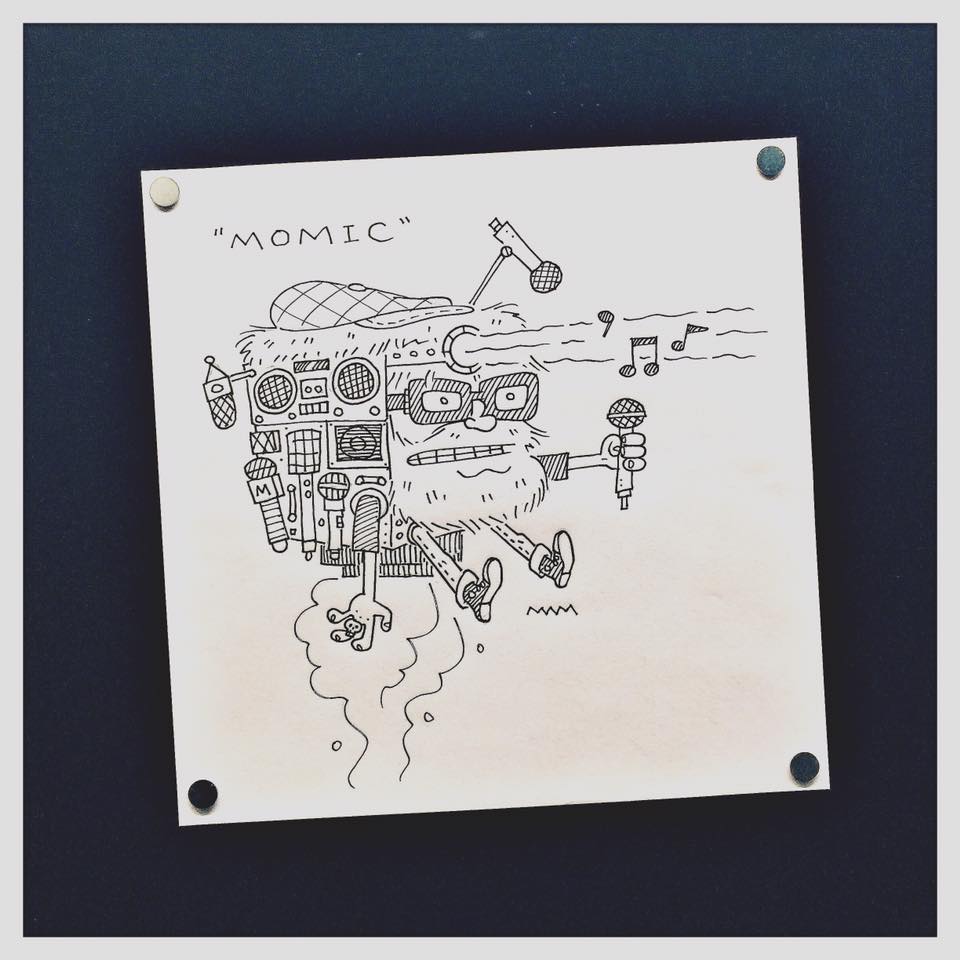 "MOMIC"
M
MAM